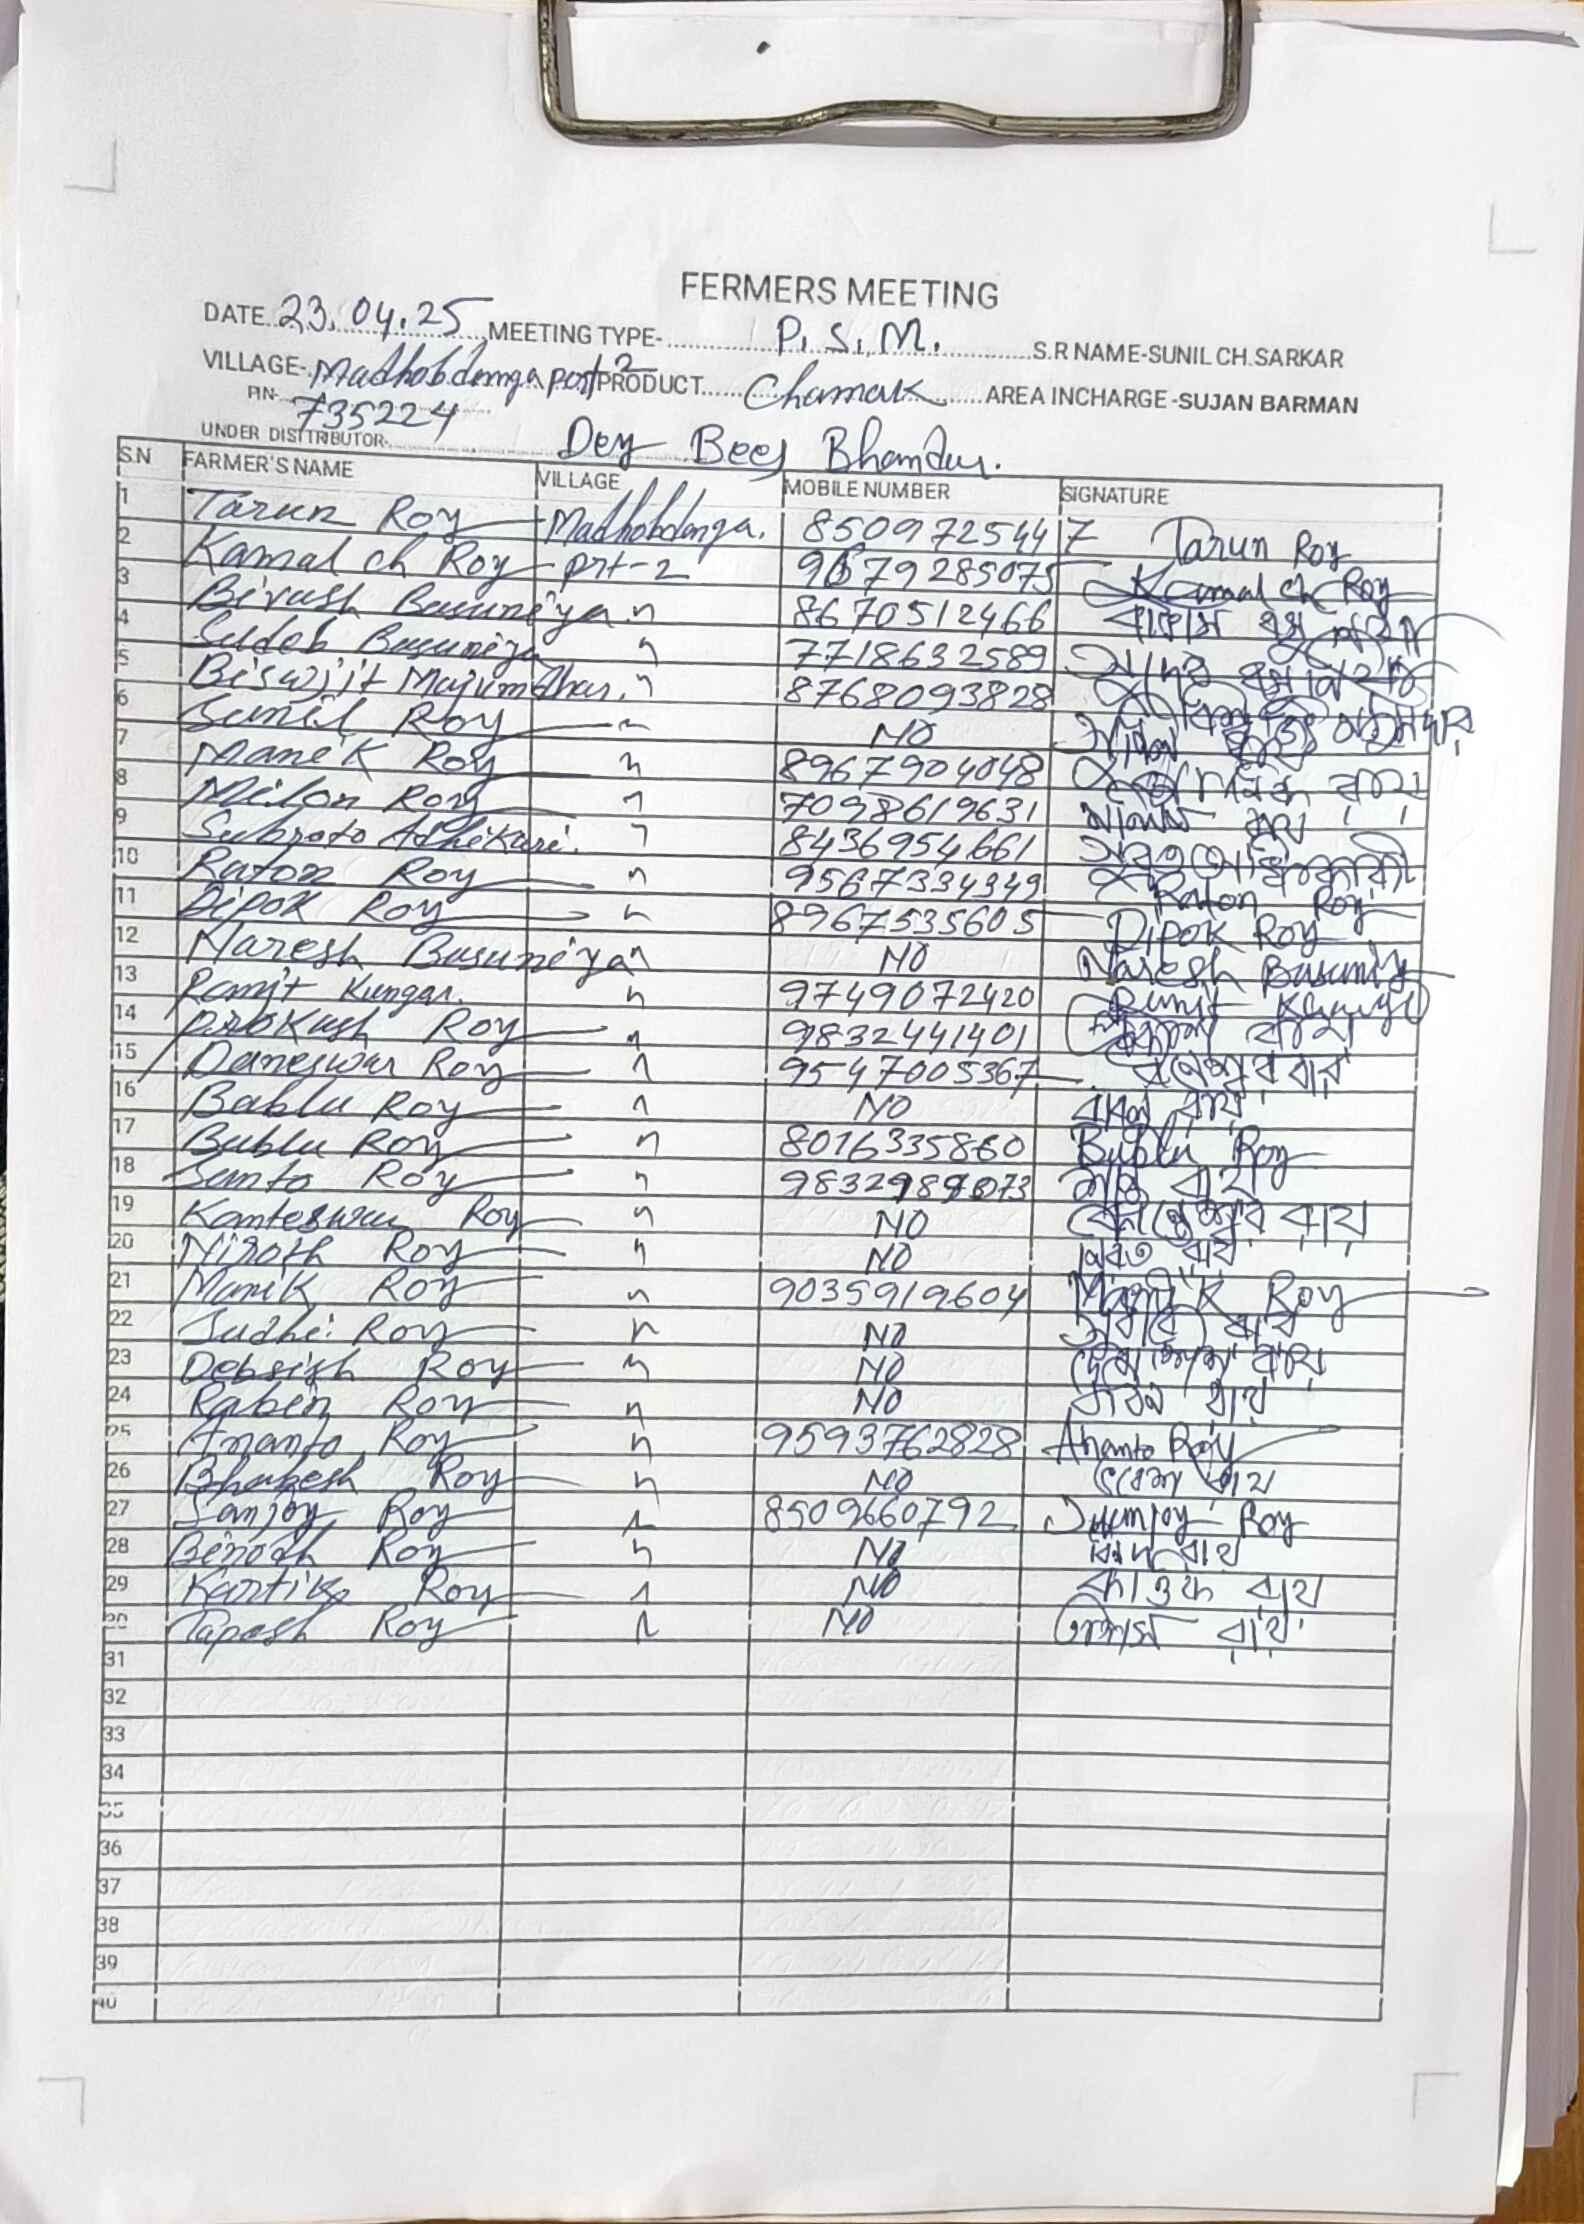 FERMERS MEETING
DATE 23.04.25 MEETING TYPE- P.S.M. S.R NAME-SUNIL CH.SARKAR
VILLAGE- Madhobdanga part 2 PRODUCT Chamak AREA INCHARGE -SUJAN BARMAN
PIN- 735224
UNDER DISTTRIBUTOR- Dey Beej Bhandar.
S.N FARMER'S NAME VILLAGE MOBILE NUMBER SIGNATURE
1 Tarun Roy Madhobdanga. 8509725447 Tarun Roy
2 Kamal ch Roy prt-2 9679285075 Kamal ch Roy
3 Bikash Basuniya " 8670512466
4 Sudeb Basuniya " 7718632589
5 Biswjit Majumdhar. " 8768093828
6 Sunil Roy " NO
7 Manik Roy " 8967904048 মানিক রায়
8 Milon Roy " 7098619631 রায়
9 Subroto Adhikari. " 8436954661 সুব্রত অধিকারী
10 Raton Roy " 9567334349 Raton Roy
11 Dipok Roy " 8967535605 Dipok Roy
12 Naresh Basuniya " NO Naresh Basuniya
13 Ranjit Kungar. " 9749072420
14 Prokash Roy " 9832441401
15 Daneswar Roy " 9547005367
16 Bablu Roy " NO রায়
17 Bublu Roy " 8016335860 Bublu Roy
18 Santo Roy " রায়
19 Kamteswar Roy " NO রায়
20 Niroth Roy " NO রায়
21 Manik Roy " 9035919604 Manik Roy
22 Sudhi: Roy " NO রায়
23 Debsish Roy " NO রায়
24 Rabin Roy " NO রায়
25 Ananto Roy " 9593762828 Ananto Roy
26 Bhabesh Roy " NO রায়
27 Sanjoy Roy " 8509660792 Sanjoy Roy
28 Binoth Roy " NO রায়
29 Kartik Roy " NO রায়
30 Tapash Roy " NO তাপস রায়
31
32
33
34
35
36
37
38
39
40